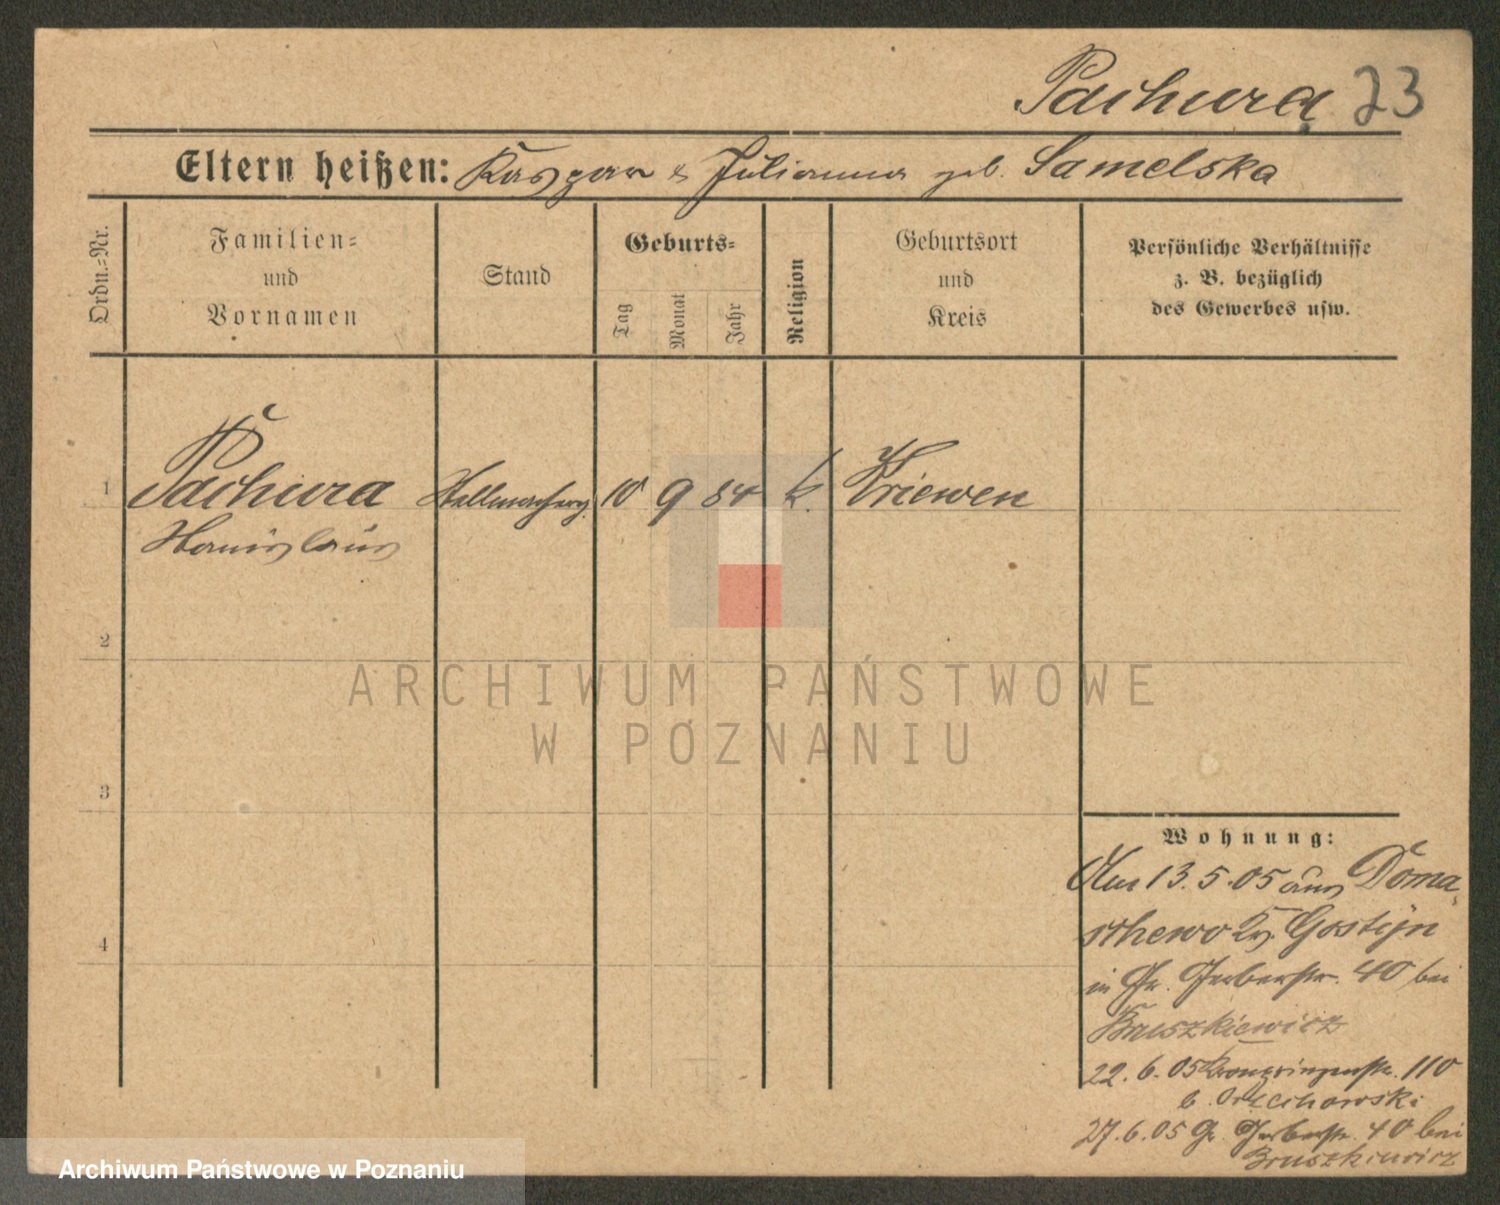 Pachura 23
Eltern heißen: Kaspar & Julianna geb. Samelska
Ordn.-Nr.
Familien-
und
Vornamen
Stand
Geburts-
Tag
Monat
Jahr
Religion
Geburtsort
und
Kreis
Persönliche Verhältnisse
z. B. bezüglich
des Gewerbes usw.
1 Pachura Stellmacherg. 10 9 84 k. Kriewen
Stanislaus
2
ARCHIWUM PAŃSTWOWE
W POZNANIU
3
Wohnung:
Am 13.5.05 aus Doma
chowo Kr. Gostyn
in Gr. Gerberstr. 40 bei
Bruszkiewicz
22.6.05 Kronprinzenstr. 110
b. Orzechowski
27.6.05 Gr. Gerberstr. 40 bei
Bruszkiewicz
4
Archiwum Państwowe w Poznaniu